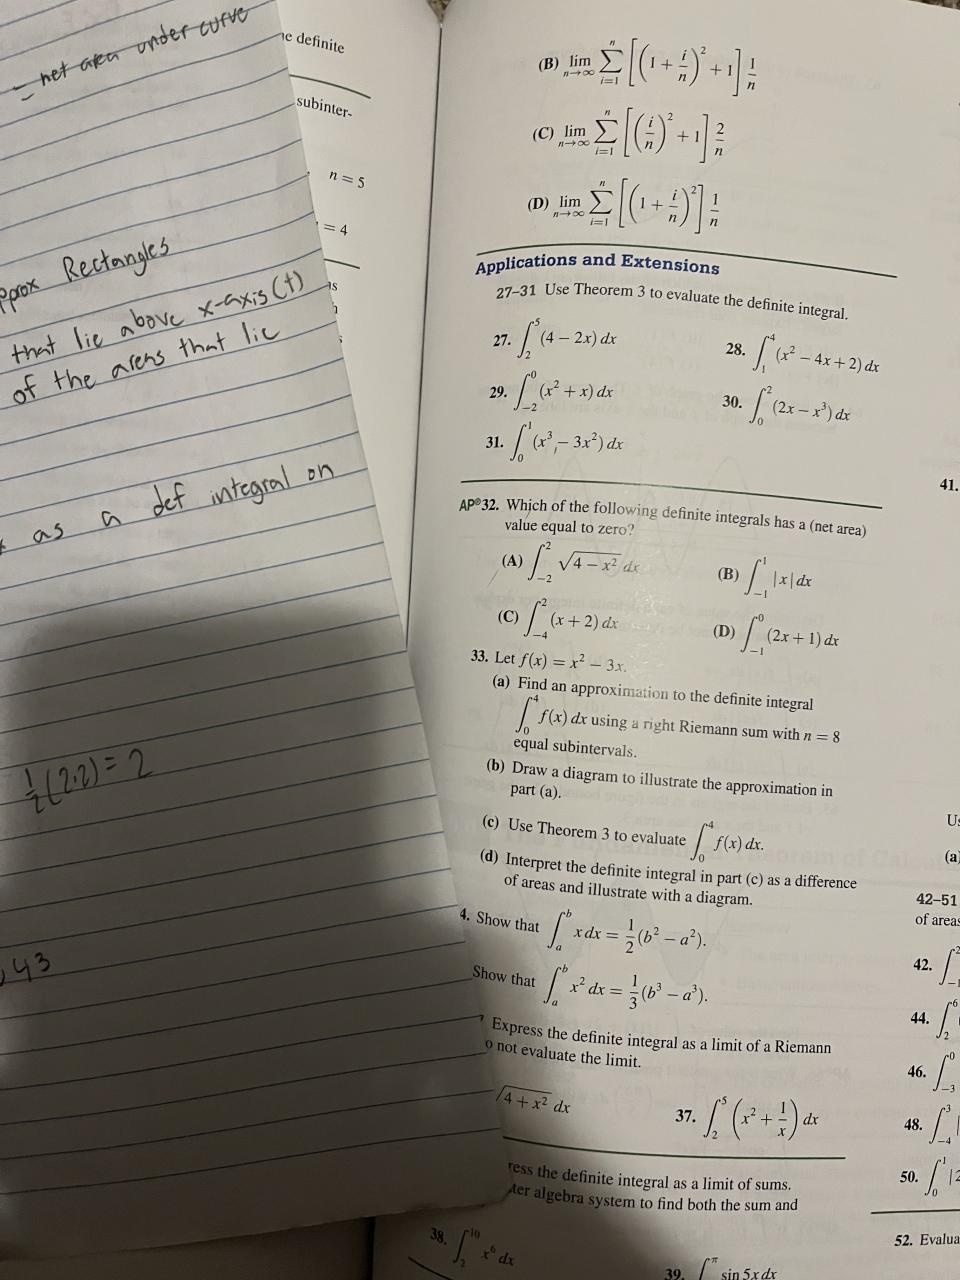 = net area under curve
Rectangles
that lie above x-axis (+)
of the areas that lie
as a def integral on
½(2·2) = 2
43
definite
subinter-
n = 5
= 4
(B) lim n→∞ ∑ i=1 n [(1 + i/n)² + 1] 1/n
(C) lim n→∞ ∑ i=1 n [(i/n)² + 1] 2/n
(D) lim n→∞ ∑ i=1 n [(1 + i/n)²] 1/n
Applications and Extensions
27–31 Use Theorem 3 to evaluate the definite integral.
27. ∫₂⁵ (4 − 2x) dx 28. ∫₁⁴ (x² − 4x + 2) dx
29. ∫₋₂⁰ (x² + x) dx 30. ∫₀² (2x − x³) dx
31. ∫₀¹ (x³ − 3x²) dx
AP® 32. Which of the following definite integrals has a (net area)
value equal to zero?
(A) ∫₋₂² √(4 − x²) dx (B) ∫₋₁¹ |x| dx
(C) ∫₋₄² (x + 2) dx (D) ∫₋₁⁰ (2x + 1) dx
33. Let f(x) = x² − 3x.
(a) Find an approximation to the definite integral
∫₀⁴ f(x) dx using a right Riemann sum with n = 8
equal subintervals.
(b) Draw a diagram to illustrate the approximation in
part (a).
(c) Use Theorem 3 to evaluate ∫₀⁴ f(x) dx.
(d) Interpret the definite integral in part (c) as a difference
of areas and illustrate with a diagram.
4. Show that ∫ₐᵇ x dx = 1/2 (b² − a²).
Show that ∫ₐᵇ x² dx = 1/3 (b³ − a³).
Express the definite integral as a limit of a Riemann
o not evaluate the limit.
√4 + x² dx 37. ∫₂⁵ (x² + 1/x) dx
ress the definite integral as a limit of sums.
ter algebra system to find both the sum and
38. ∫₂¹⁰ x⁶ dx
39. ∫ π sin 5x dx
41.
Us
(a)
42–51
of areas
42. ∫
44. ∫₂⁶
46. ∫₋₃⁰
48. ∫₋₄³
50. ∫₀¹ |2
52. Evalua